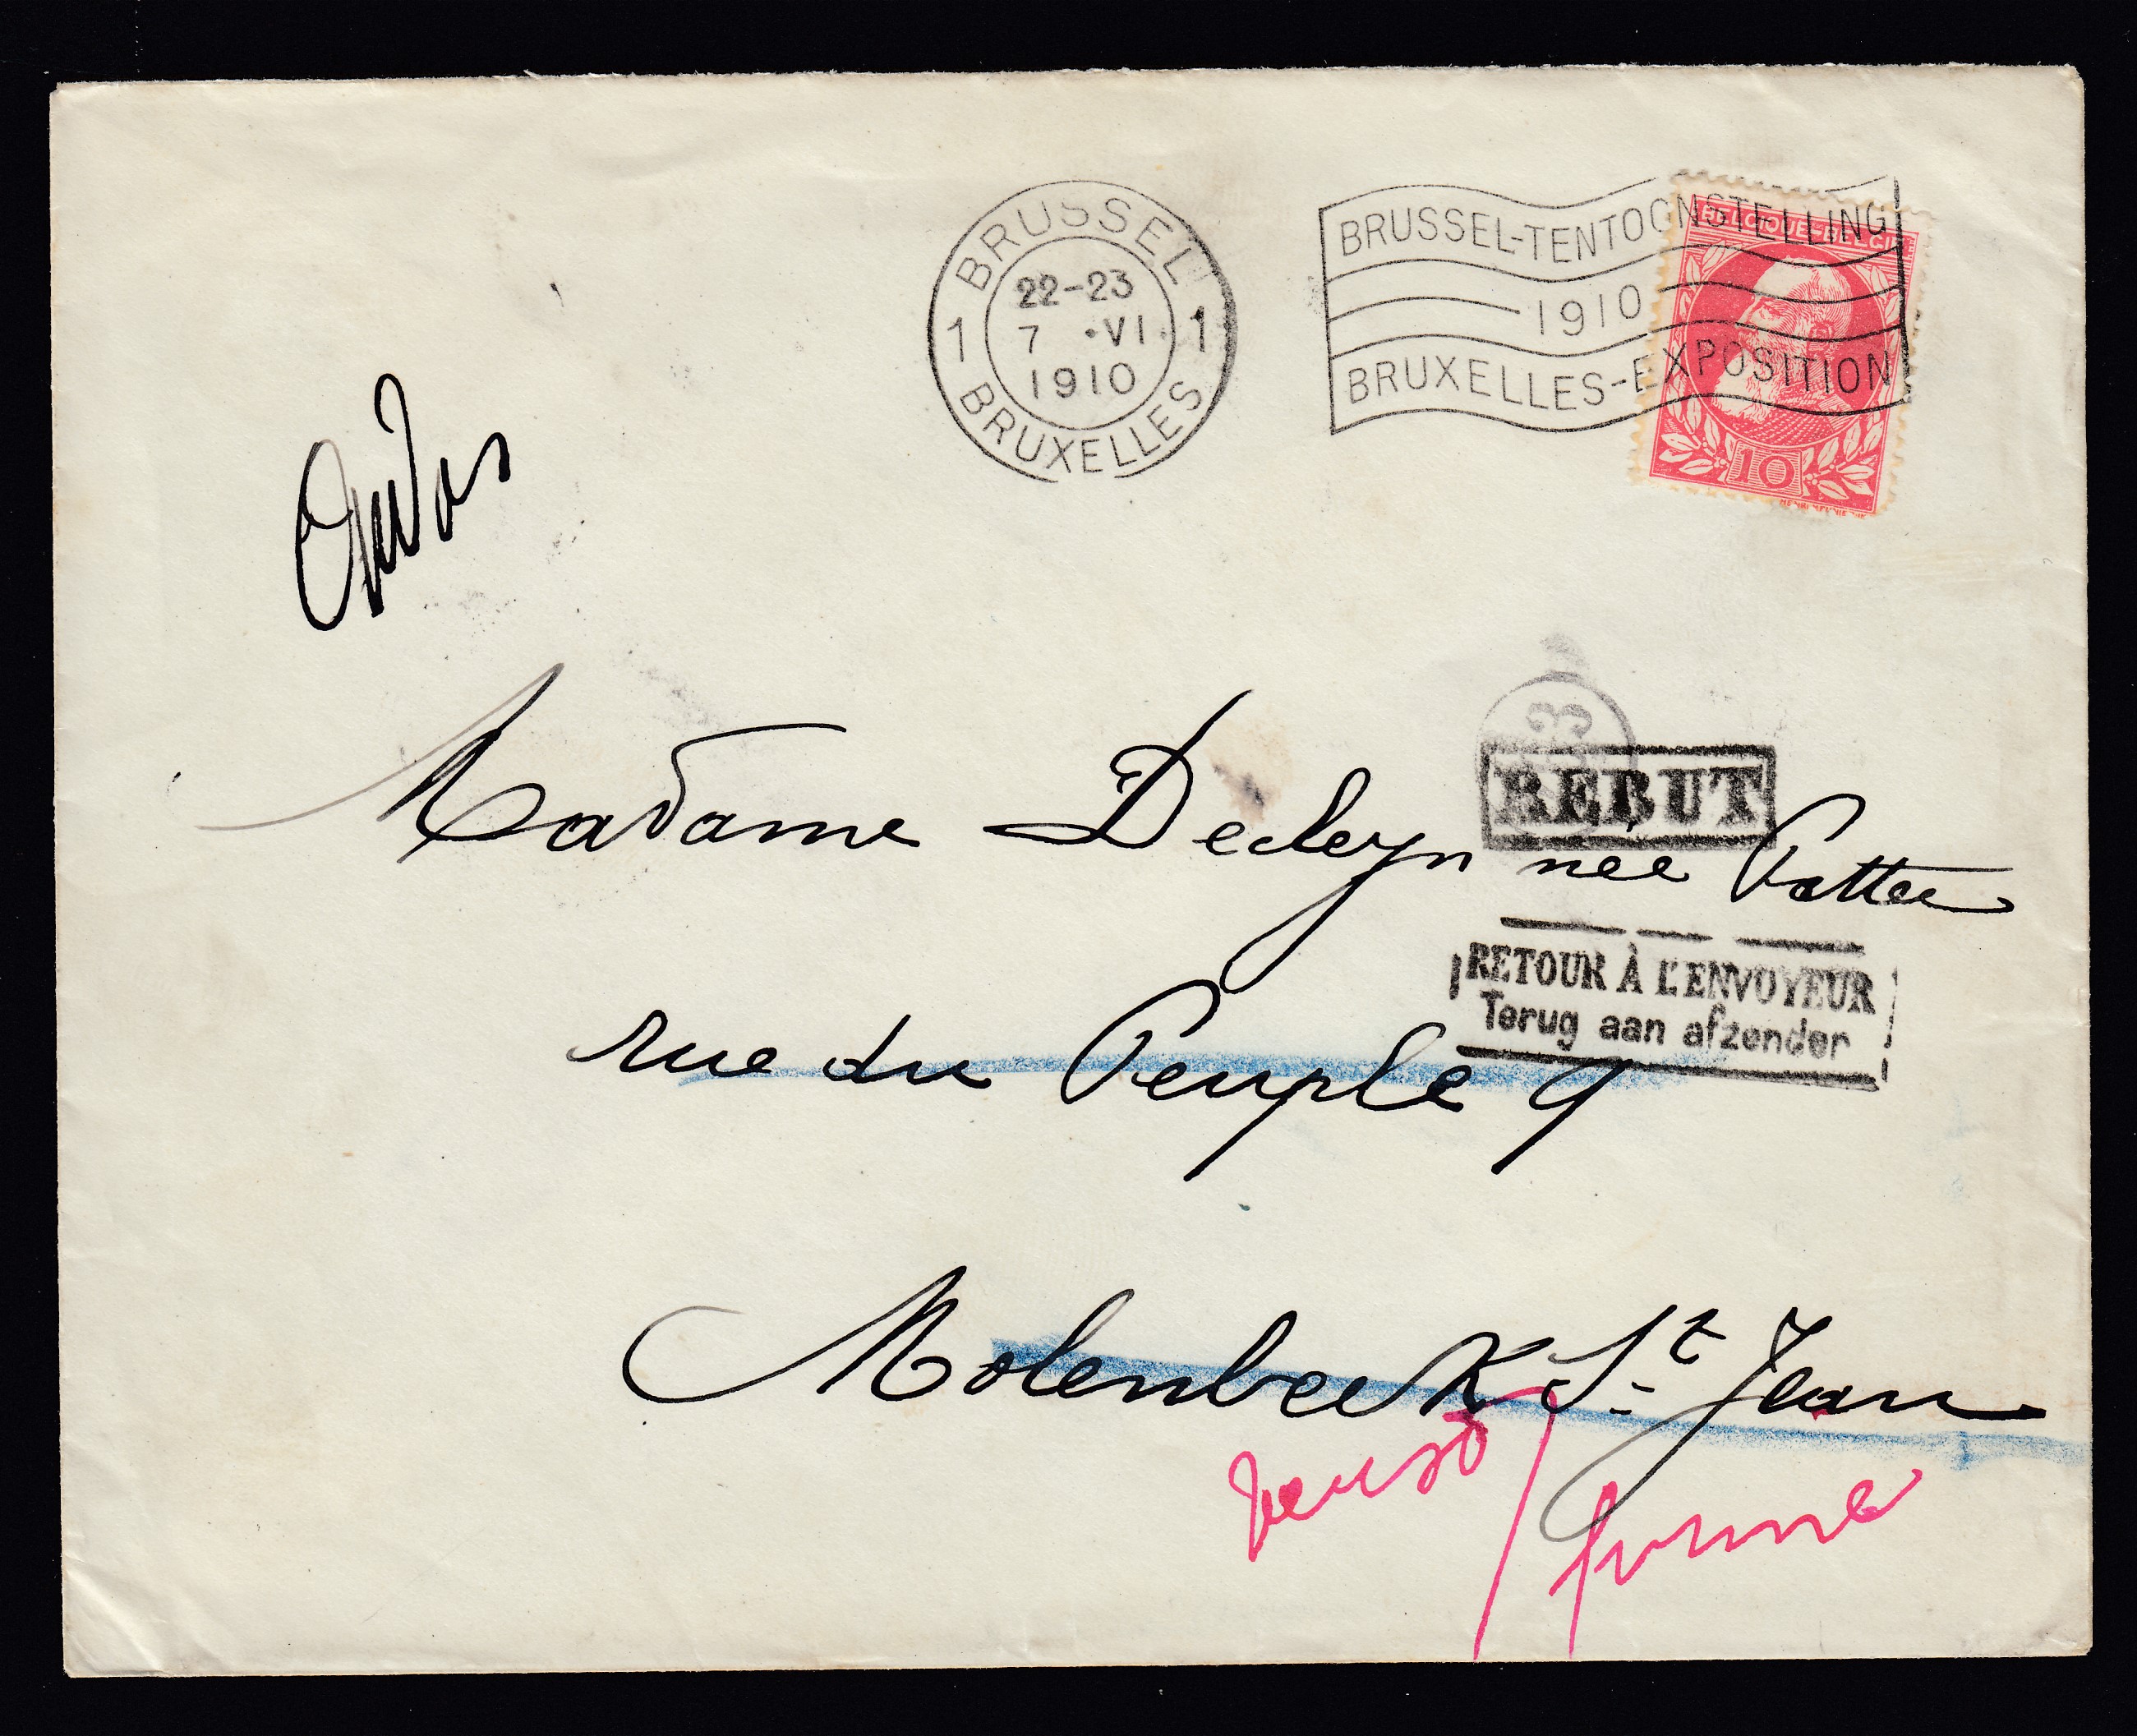 BRUSSEL
22-23
7 ·VI·
1910
1 1
BRUXELLES
BRUSSEL-TENTOONSTELLING
1910
BRUXELLES-EXPOSITION
BELGIQUE-BELGIË
10
Au dos
REBUT
Madame Decleyn née Pattee
RETOUR À L'ENVOYEUR
Terug aan afzender
rue du Peuple 9
Molenbeek St Jean